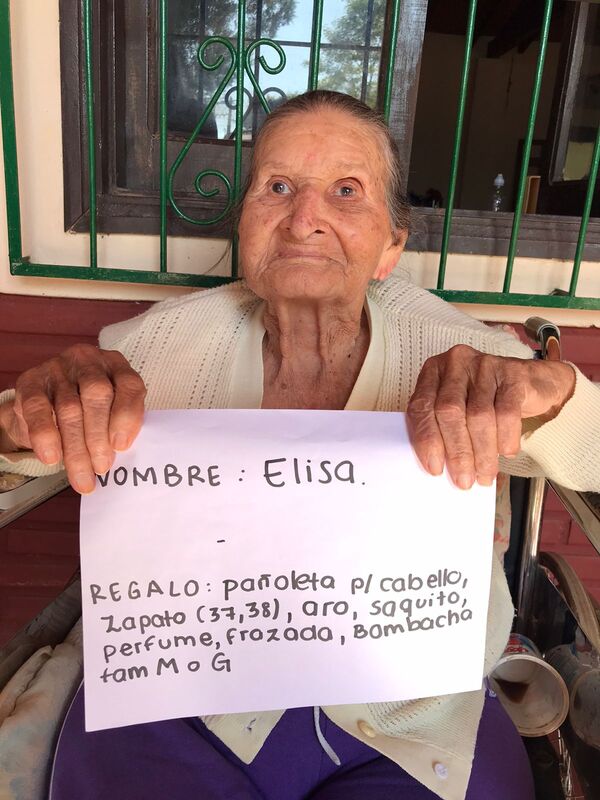 NOMBRE : Elisa.
-
REGALO: pañoleta p/ cabello,
zapato (37,38), aro, saquito,
perfume, frozada, Bombacha
tam M o G